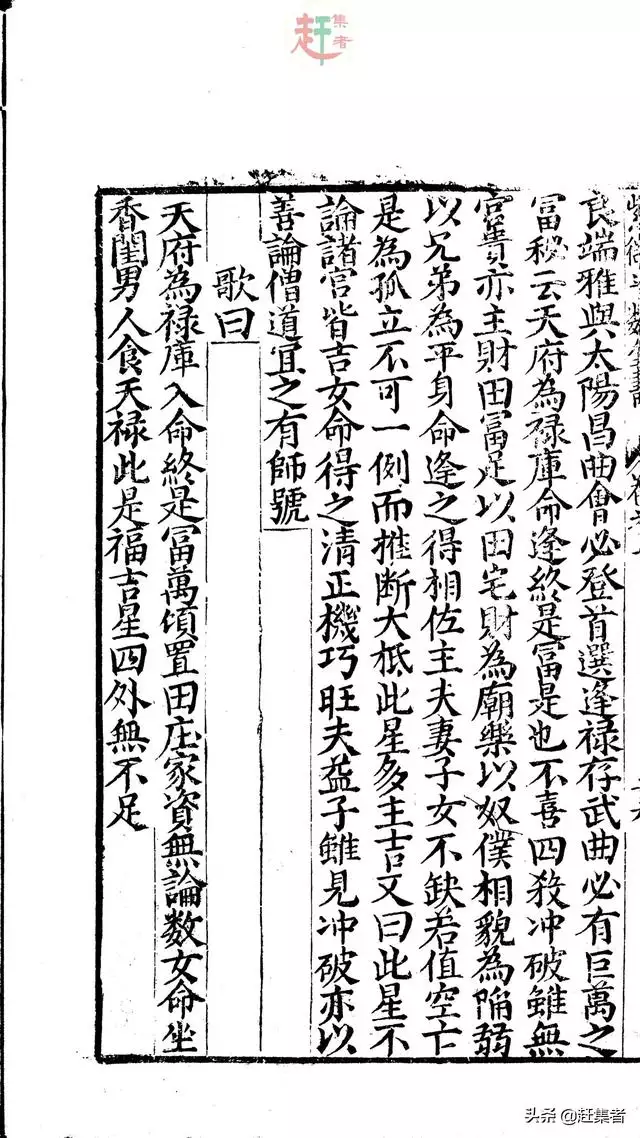 赶集者
良端雅與太陽昌曲會必登首選逢禄存武曲必有巨萬之
冨秘云天府為禄庫命逢終是冨是也不喜四殺冲破雖無
官貴亦主財田冨足以田宅財為廟樂以奴僕相貌為陥弱
以兄弟為平身命逢之得相佐主夫妻子女不缺若值空亡
是為孤立不可一例而推断大柢此星多主吉又曰此星不
論諸宫皆吉女命得之清正機巧旺夫益子雖見冲破亦以
善論僧道宜之有師號
歌曰
天府為禄庫入命終是冨萬頃置田庄家資無論数女命坐
香閨男人食天禄此是福吉星四外無不足
头条 @赶集者